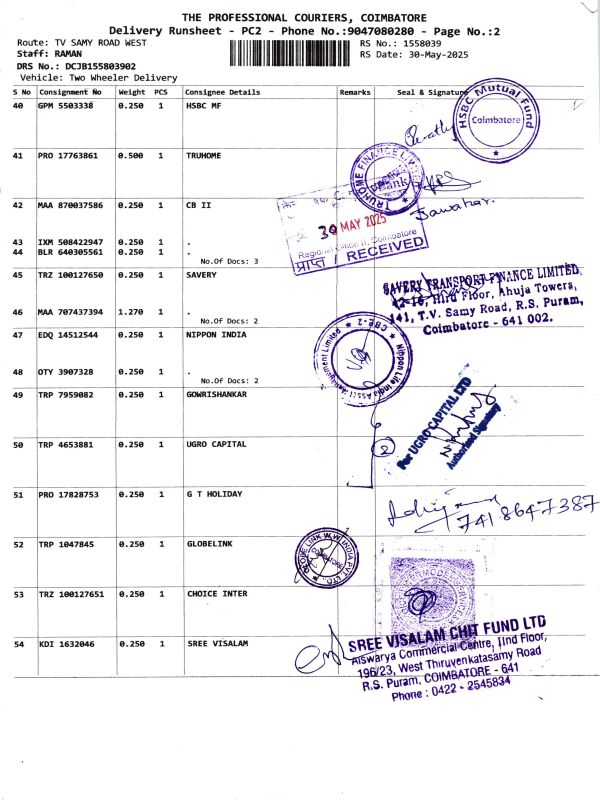 THE PROFESSIONAL COURIERS, COIMBATORE
Delivery Runsheet - PC2 - Phone No.:9047080280 - Page No.:2
Route: TV SAMY ROAD WEST
RS No.: 1558039
Staff: RAMAN
RS Date: 30-May-2025
DRS No.: DCJB155803902
Vehicle: Two Wheeler Delivery
S No Consignment No Weight PCS Consignee Details Remarks Seal & Signature
40 GPM 5503338 0.250 1 HSBC MF
HSBC Mutual Fund
Coimbatore
41 PRO 17763861 0.500 1 TRUHOME
TRUHOME FINANCE LIMITED
42 MAA 870037586 0.250 1 CB II
Bank
Jawahar.
30 MAY 2025
Regional Office II, Coimbatore
प्राप्त / RECEIVED
43 IXM 508422947 0.250 1 .
44 BLR 640305561 0.250 1 .
No.Of Docs: 3
45 TRZ 100127650 0.250 1 SAVERY
SAVERY TRANSPORT FINANCE LIMITED,
42-16, IIIrd Floor, Ahuja Towers,
141, T.V. Samy Road, R.S. Puram,
Coimbatore - 641 002.
46 MAA 707437394 1.270 1 .
No.Of Docs: 2
47 EDQ 14512544 0.250 1 NIPPON INDIA
Nippon Life India Asset Management Limited
CBE-2
48 OTY 3907328 0.250 1 .
No.Of Docs: 2
49 TRP 7959082 0.250 1 GOWRISHANKAR
50 TRP 4653881 0.250 1 UGRO CAPITAL
2
For UGRO CAPITAL LTD
Authorised Signatory
51 PRO 17828753 0.250 1 G T HOLIDAY
7418647387
52 TRP 1047845 0.250 1 GLOBELINK
GLOBE LINK WW INDIA PVT. LTD.
COIMBATORE
53 TRZ 100127651 0.250 1 CHOICE INTER
54 KDI 1632046 0.250 1 SREE VISALAM
SREE VISALAM CHIT FUND LTD
Aiswarya Commercial Centre, IInd Floor,
196/23, West Thiruvenkatasamy Road
R.S. Puram, COIMBATORE - 641
Phone : 0422 - 2545834